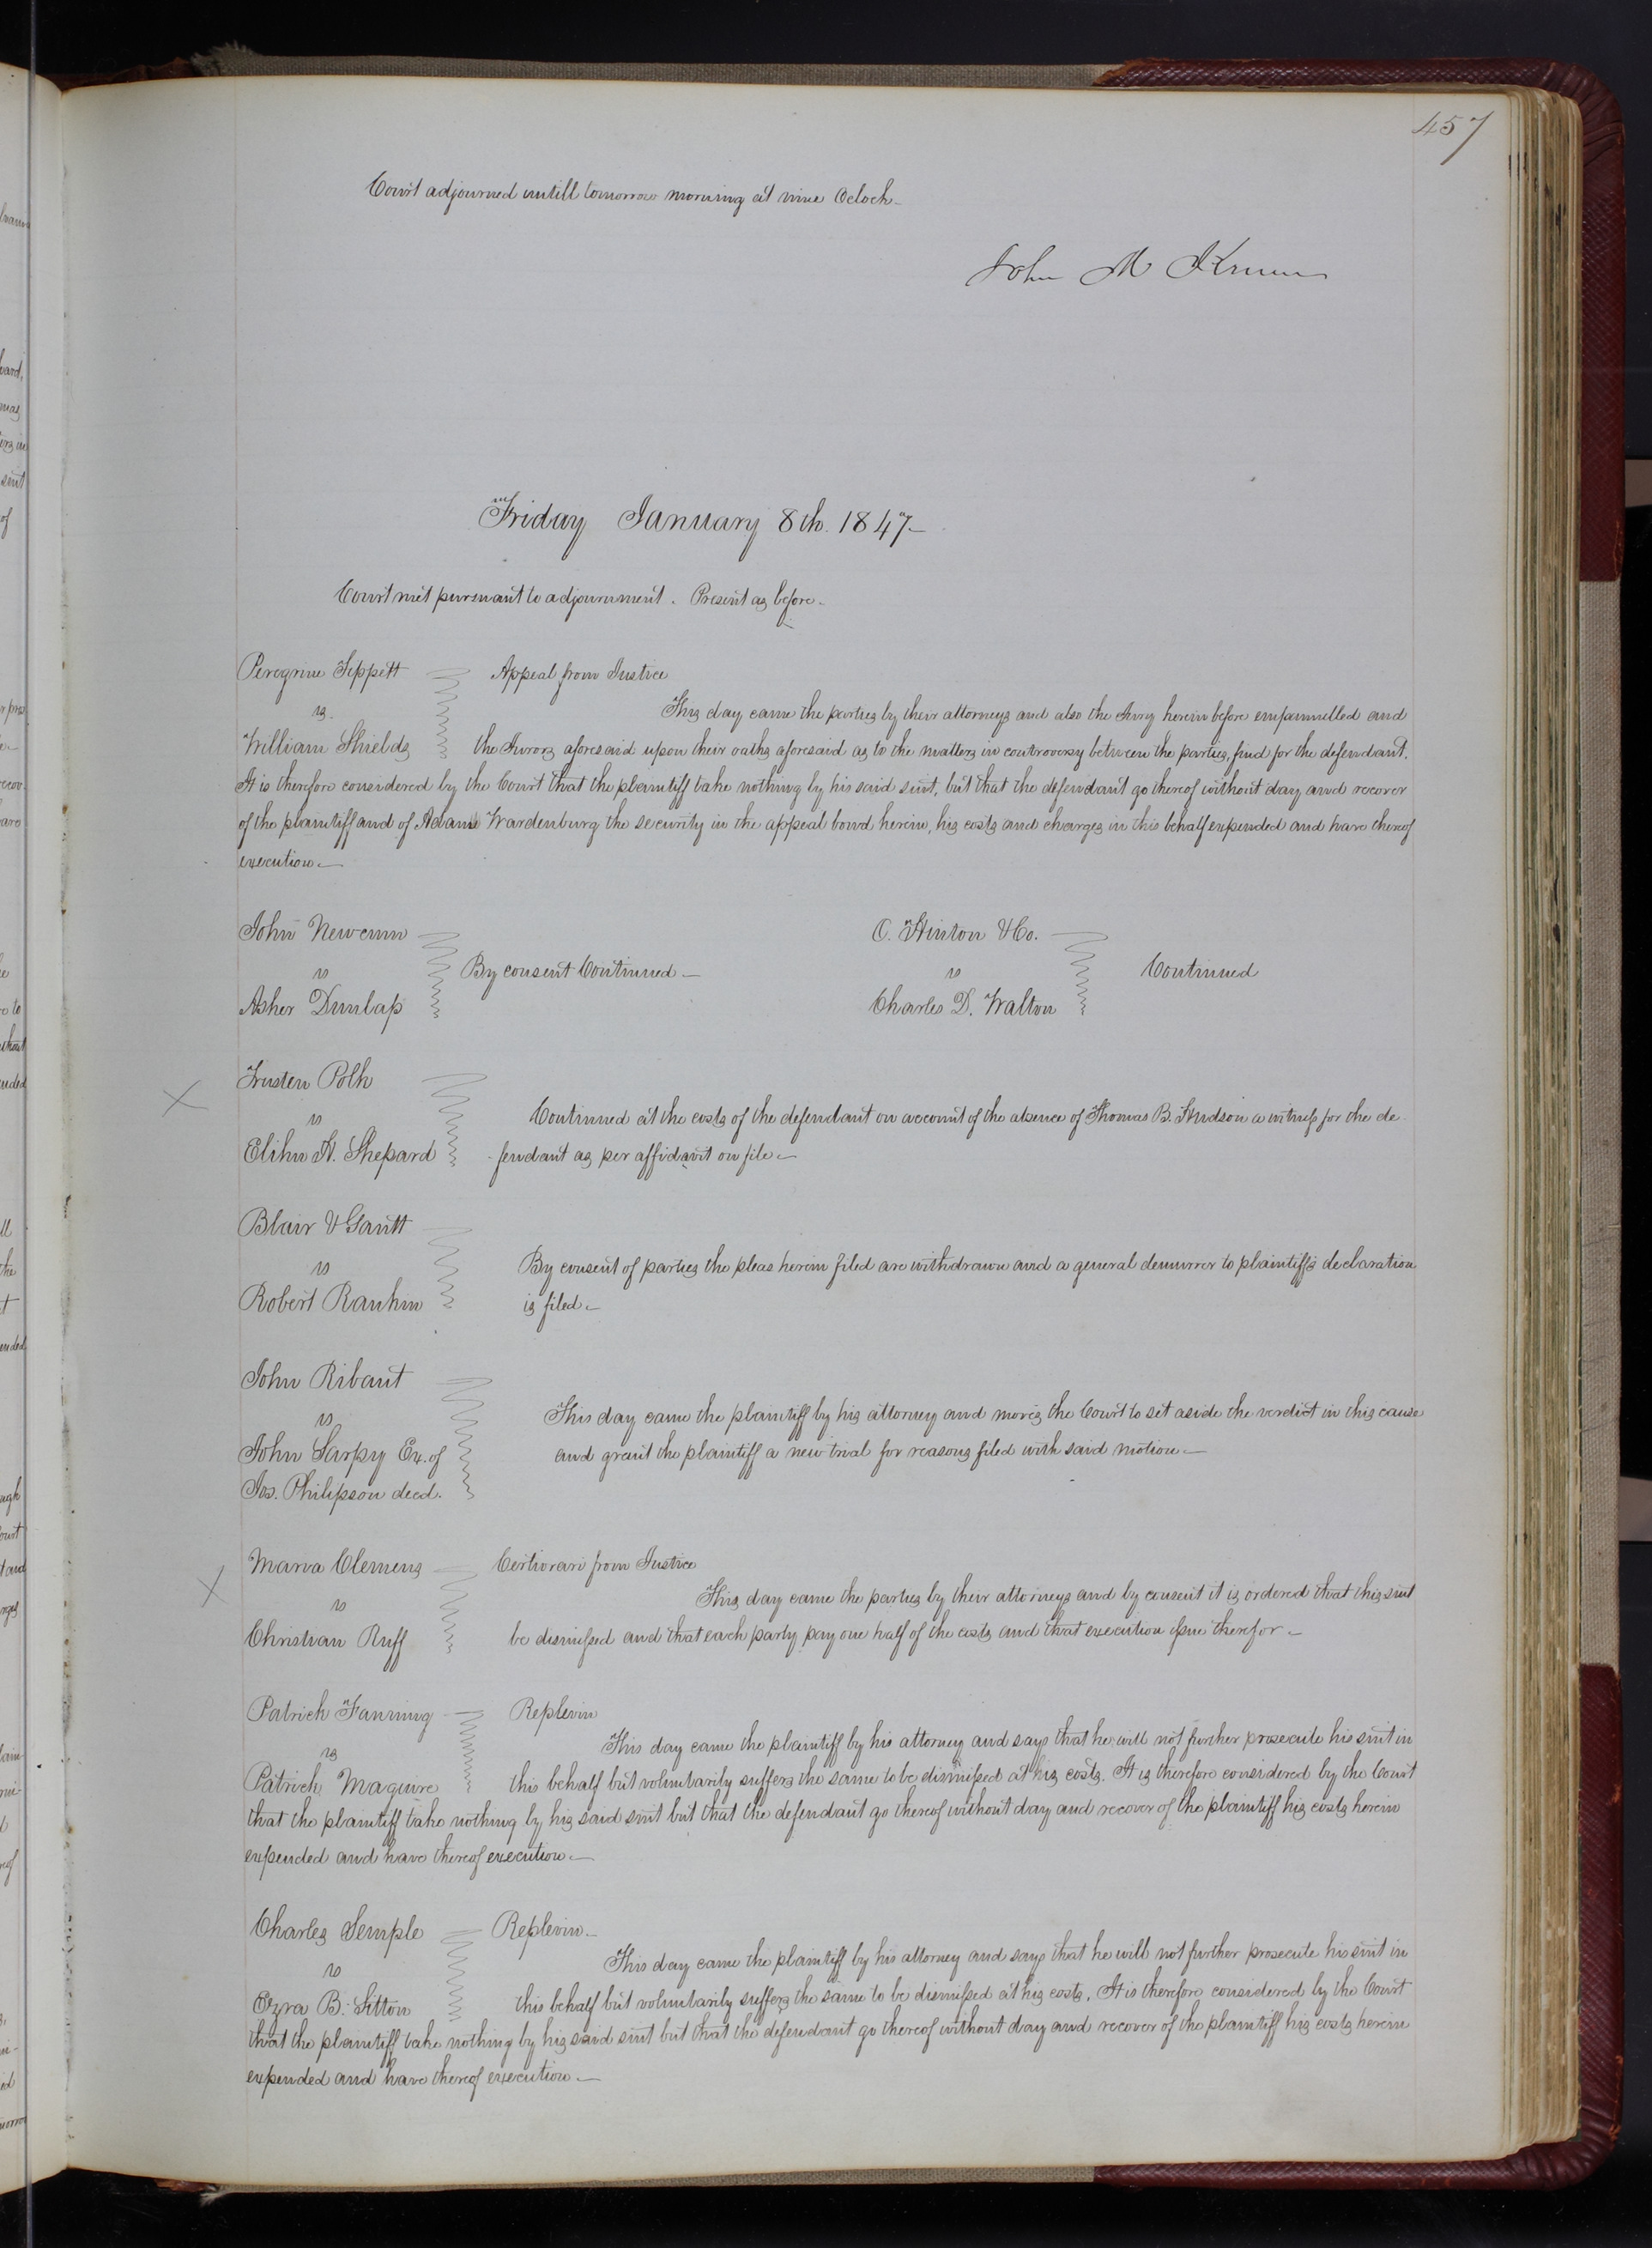 457
Court adjourned untill tomorrow morning at nine Oclock
John M Krum
Friday January 8th. 1847
Court met pursuant to adjournment. Present as before.
Peregrine Tippett
Appeal from Justice
vs.
This day came the parties by their attorneys and also the Jury herein before empannelled and
William Shields
the Jurors aforesaid upon their oaths aforesaid as to the matters in controversy between the parties, find for the defendant.
It is therefore considered by the Court that the plaintiff take nothing by his said suit, but that the defendant go thereof without day and recover
of the plaintiff and of Adam Wardenburg the security in the appeal bond herein, his costs and charges in this behalf expended and have thereof
execution.
John Newcum
vs
By consent Continued
Asher Dunlap
C. Hinton & Co.
vs
Continued
Charles D. Walton
Trusten Polk
vs
Continued at the costs of the defendant on account of the absence of Thomas B. Hudson a witness for the de
Elihu H. Shepard
fendant as per affidavit on file
Blair & Gantt
vs
By consent of parties the pleas herein filed are withdrawn and a general demurrer to plaintiffs declaration
Robert Rankin
is filed
John Ribaut
vs
This day came the plaintiff by his attorney and moves the Court to set aside the verdict in this cause
John Sarpy Ex. of
and grant the plaintiff a new trial for reasons filed with said motion
Jos. Philipson decd.
Clemens
Certiorari from Justice
vs
This day came the parties by their attorneys and by consent it is ordered that this suit
Christian Ruff
be dismissed and that each party pay one half of the costs and that execution issue therefor
Patrick Fanning
Replevin
vs
This day came the plaintiff by his attorney and says that he will not further prosecute his suit in
Patrick Maguire
this behalf but voluntarily suffers the same to be dismissed at his costs. It is therefore considered by the Court
that the plaintiff take nothing by his said suit but that the defendant go thereof without day and recover of the plaintiff his costs herein
expended and have thereof execution
Charles Semple
Replevin
vs
This day came the plaintiff by his attorney and says that he will not further prosecute his suit in
Ezra B. Sitton
this behalf but voluntarily suffers the same to be dismissed at his costs. It is therefore considered by the Court
that the plaintiff take nothing by his said suit but that the defendant go thereof without day and recover of the plaintiff his costs herein
expended and have thereof execution